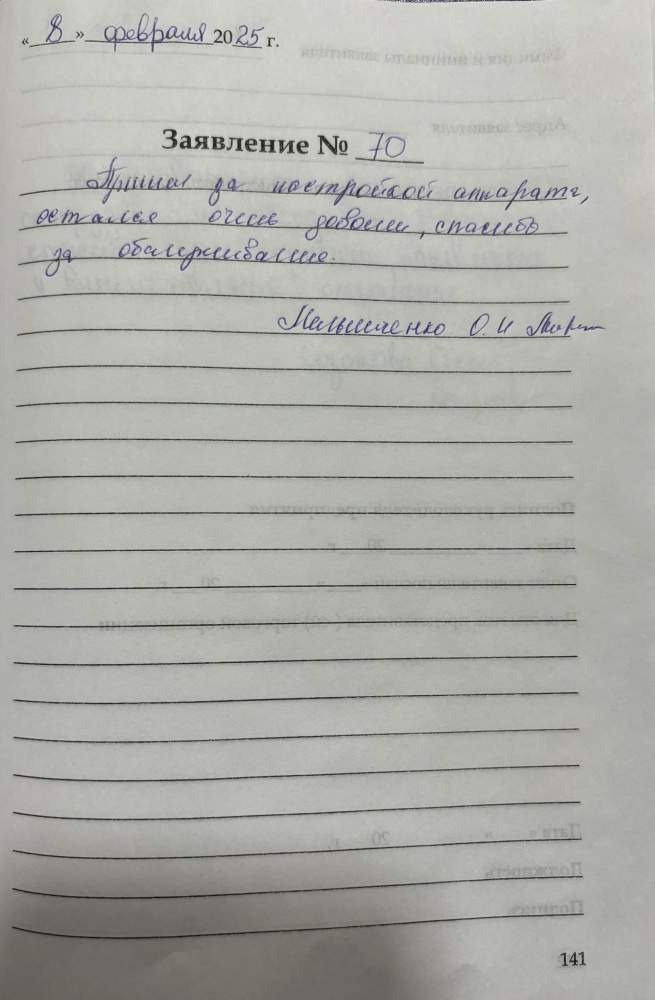 «8» февраля 2025 г.
Заявление № 70
Пришел за настройкой аппарата,
остался очень доволен, спасибо
за обслуживание.
О. И
141